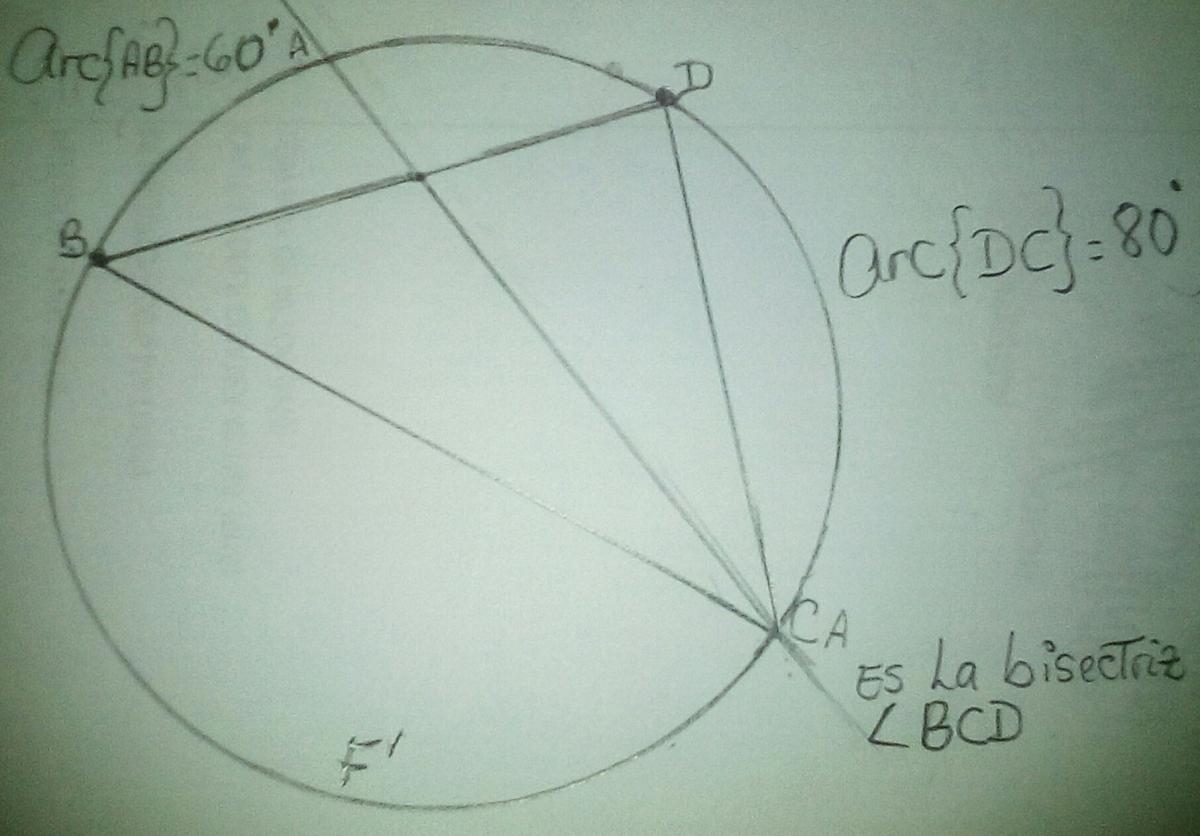 Arc{AB}=60°
A
D
B
Arc{DC}=80°
CA
Es La bisectriz
∠BCD
F'